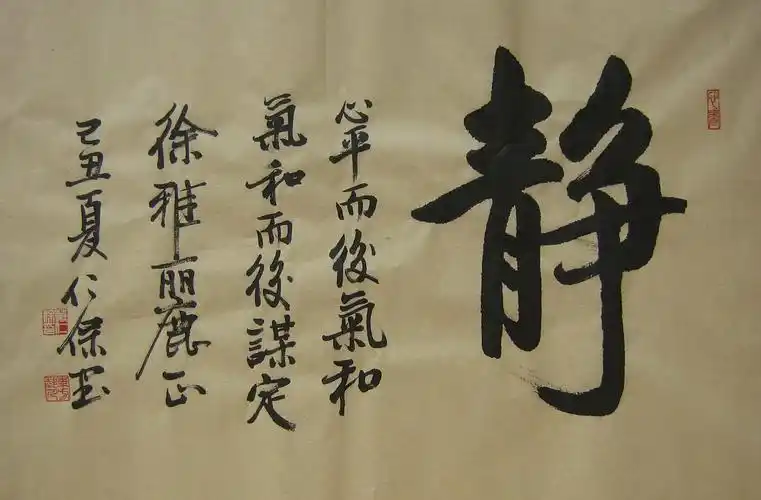 静
心平而後氣和
氣和而後謀定
徐雅麗正
己丑夏仁保書